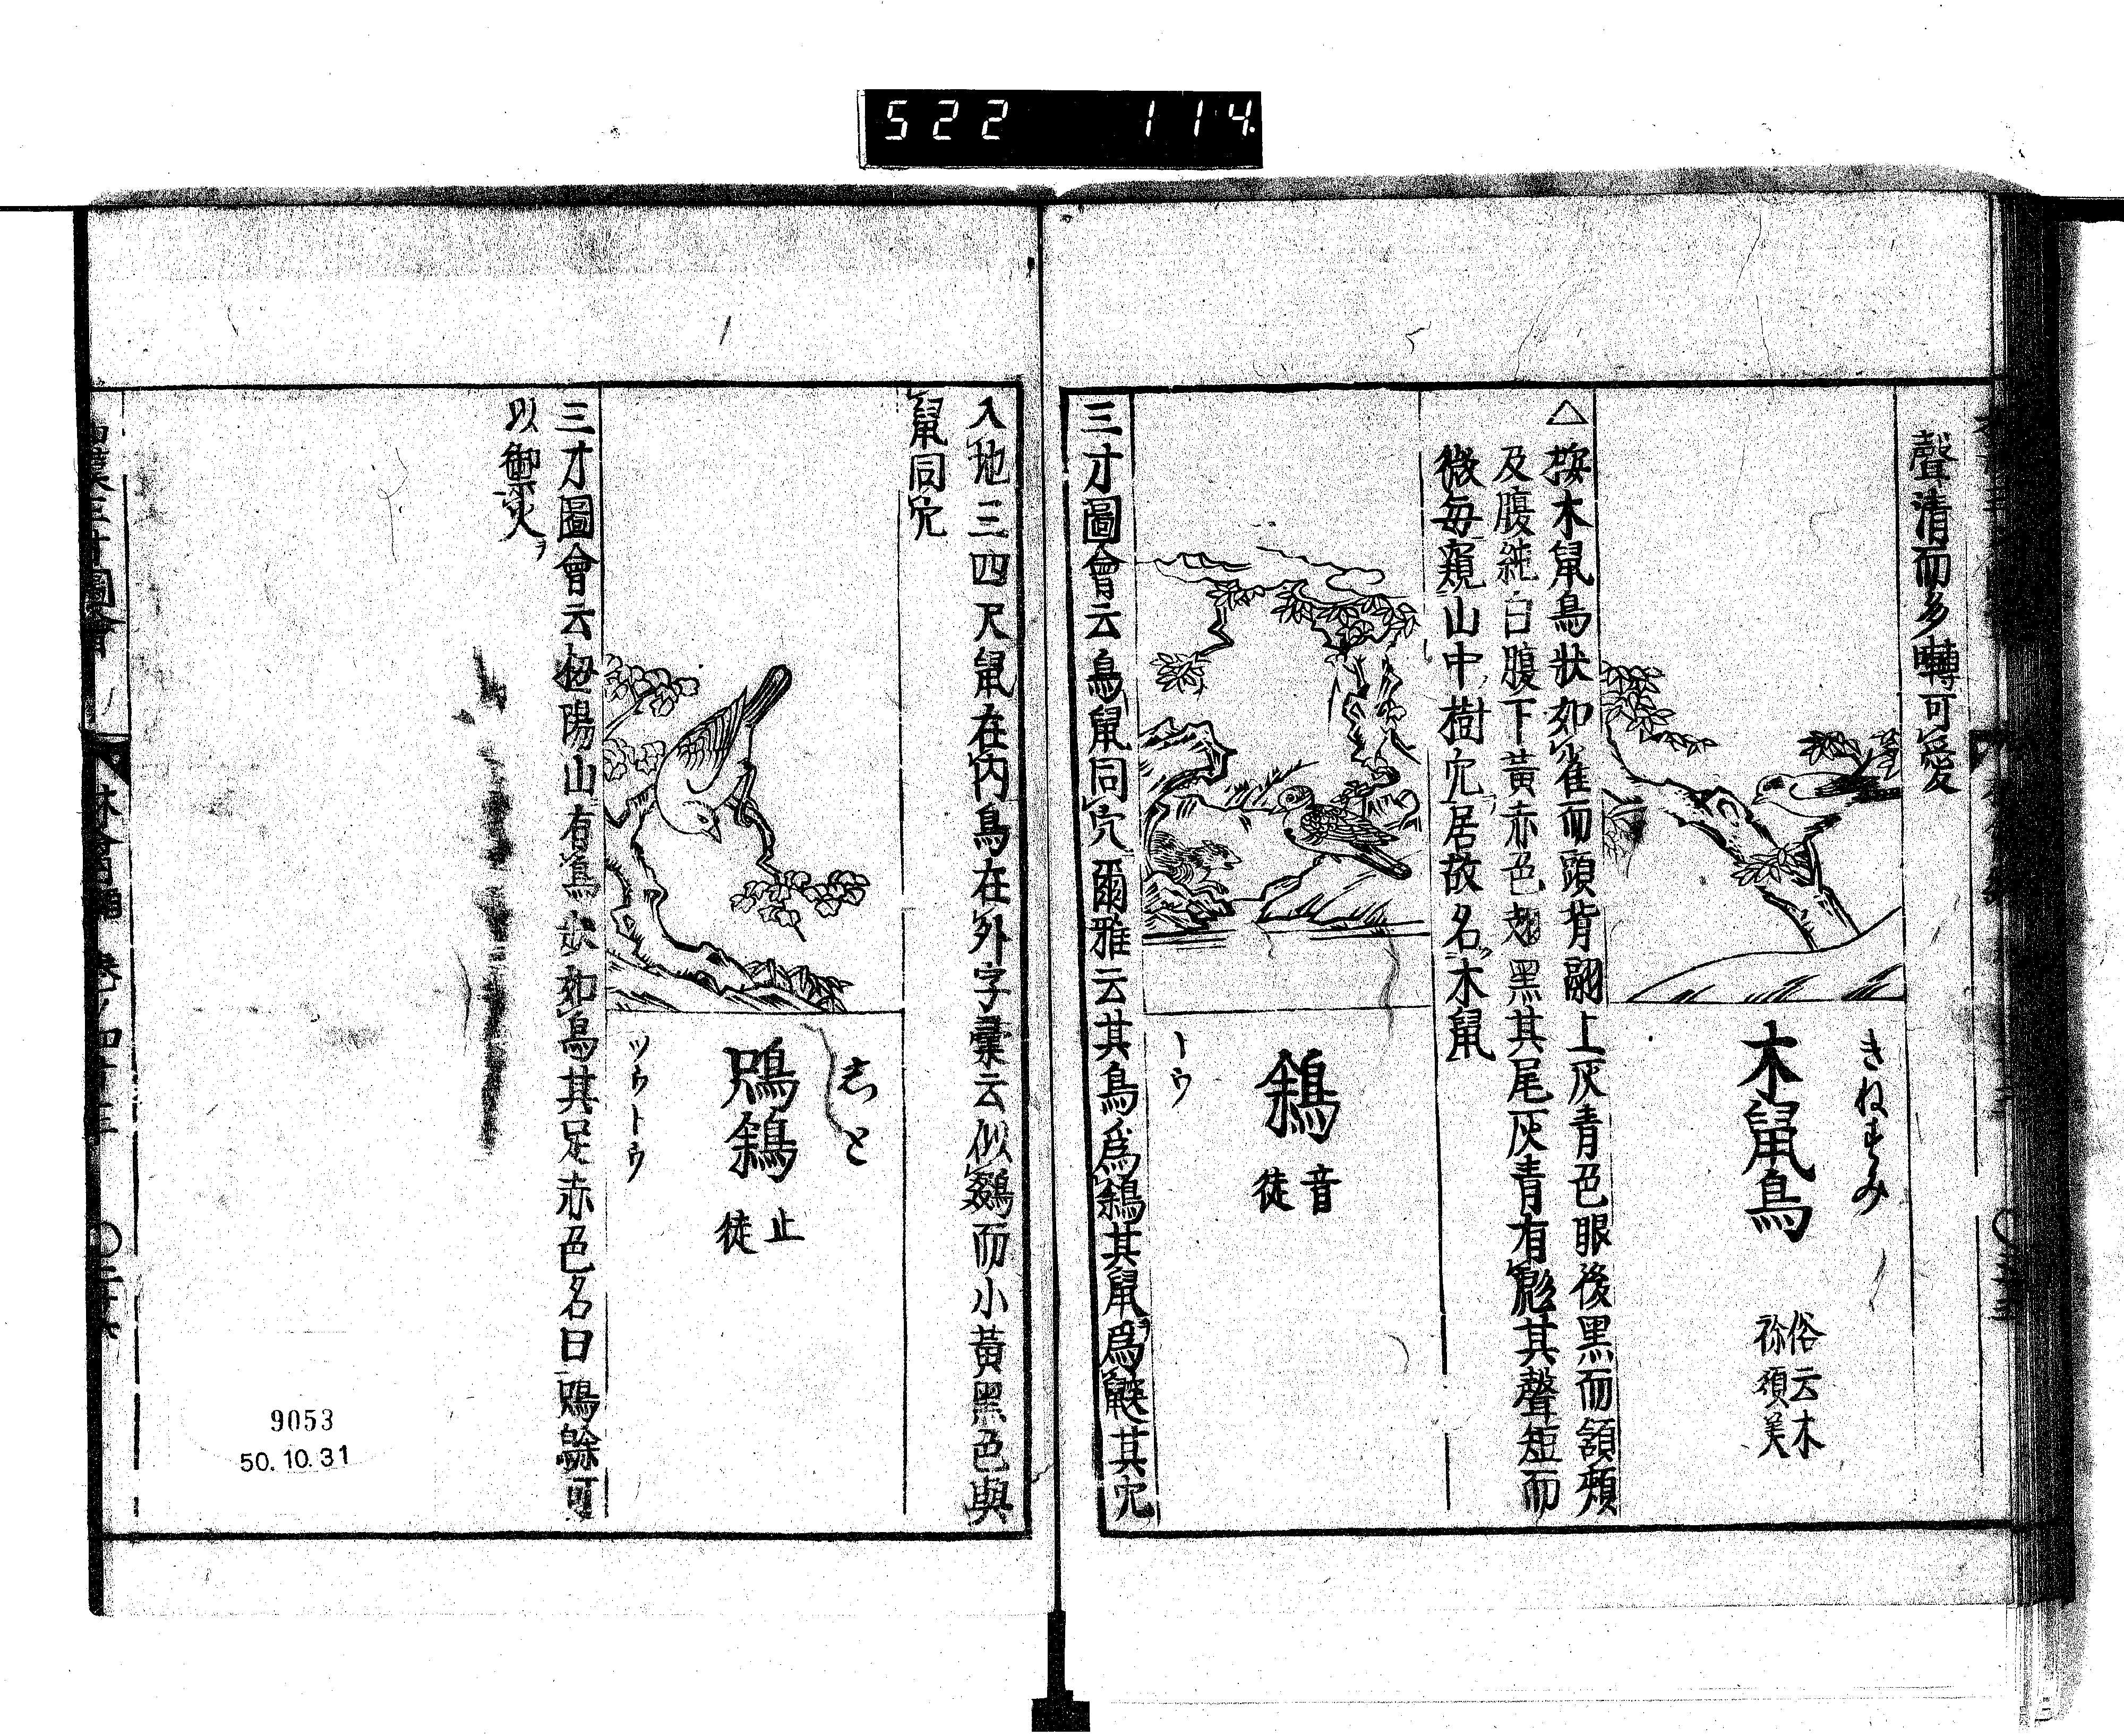 522 114.
聲清而多囀可愛
きねずみ
木鼠鳥
俗云木
祢須美
△按木鼠鳥狀如雀而頭背翮上灰青色眼後黑而頷頰
及腹純白腹下黃赤色翅黑其尾灰青有彪其聲短而
微每窺山中樹穴居故名木鼠
鵌
音
徒
トウ
三才圖會云鳥鼠同穴爾雅云其鳥爲鵌其鼠爲鼵其穴
入地三四尺鼠在內鳥在外字彙云似鵽而小黃黑色與
鼠同穴
しと
䳅鵌
止
徒
ツウトウ
三才圖會云杻陽山有鳥狀如烏其足赤色名曰䳅鵌可
以禦火
9053
50.10.31